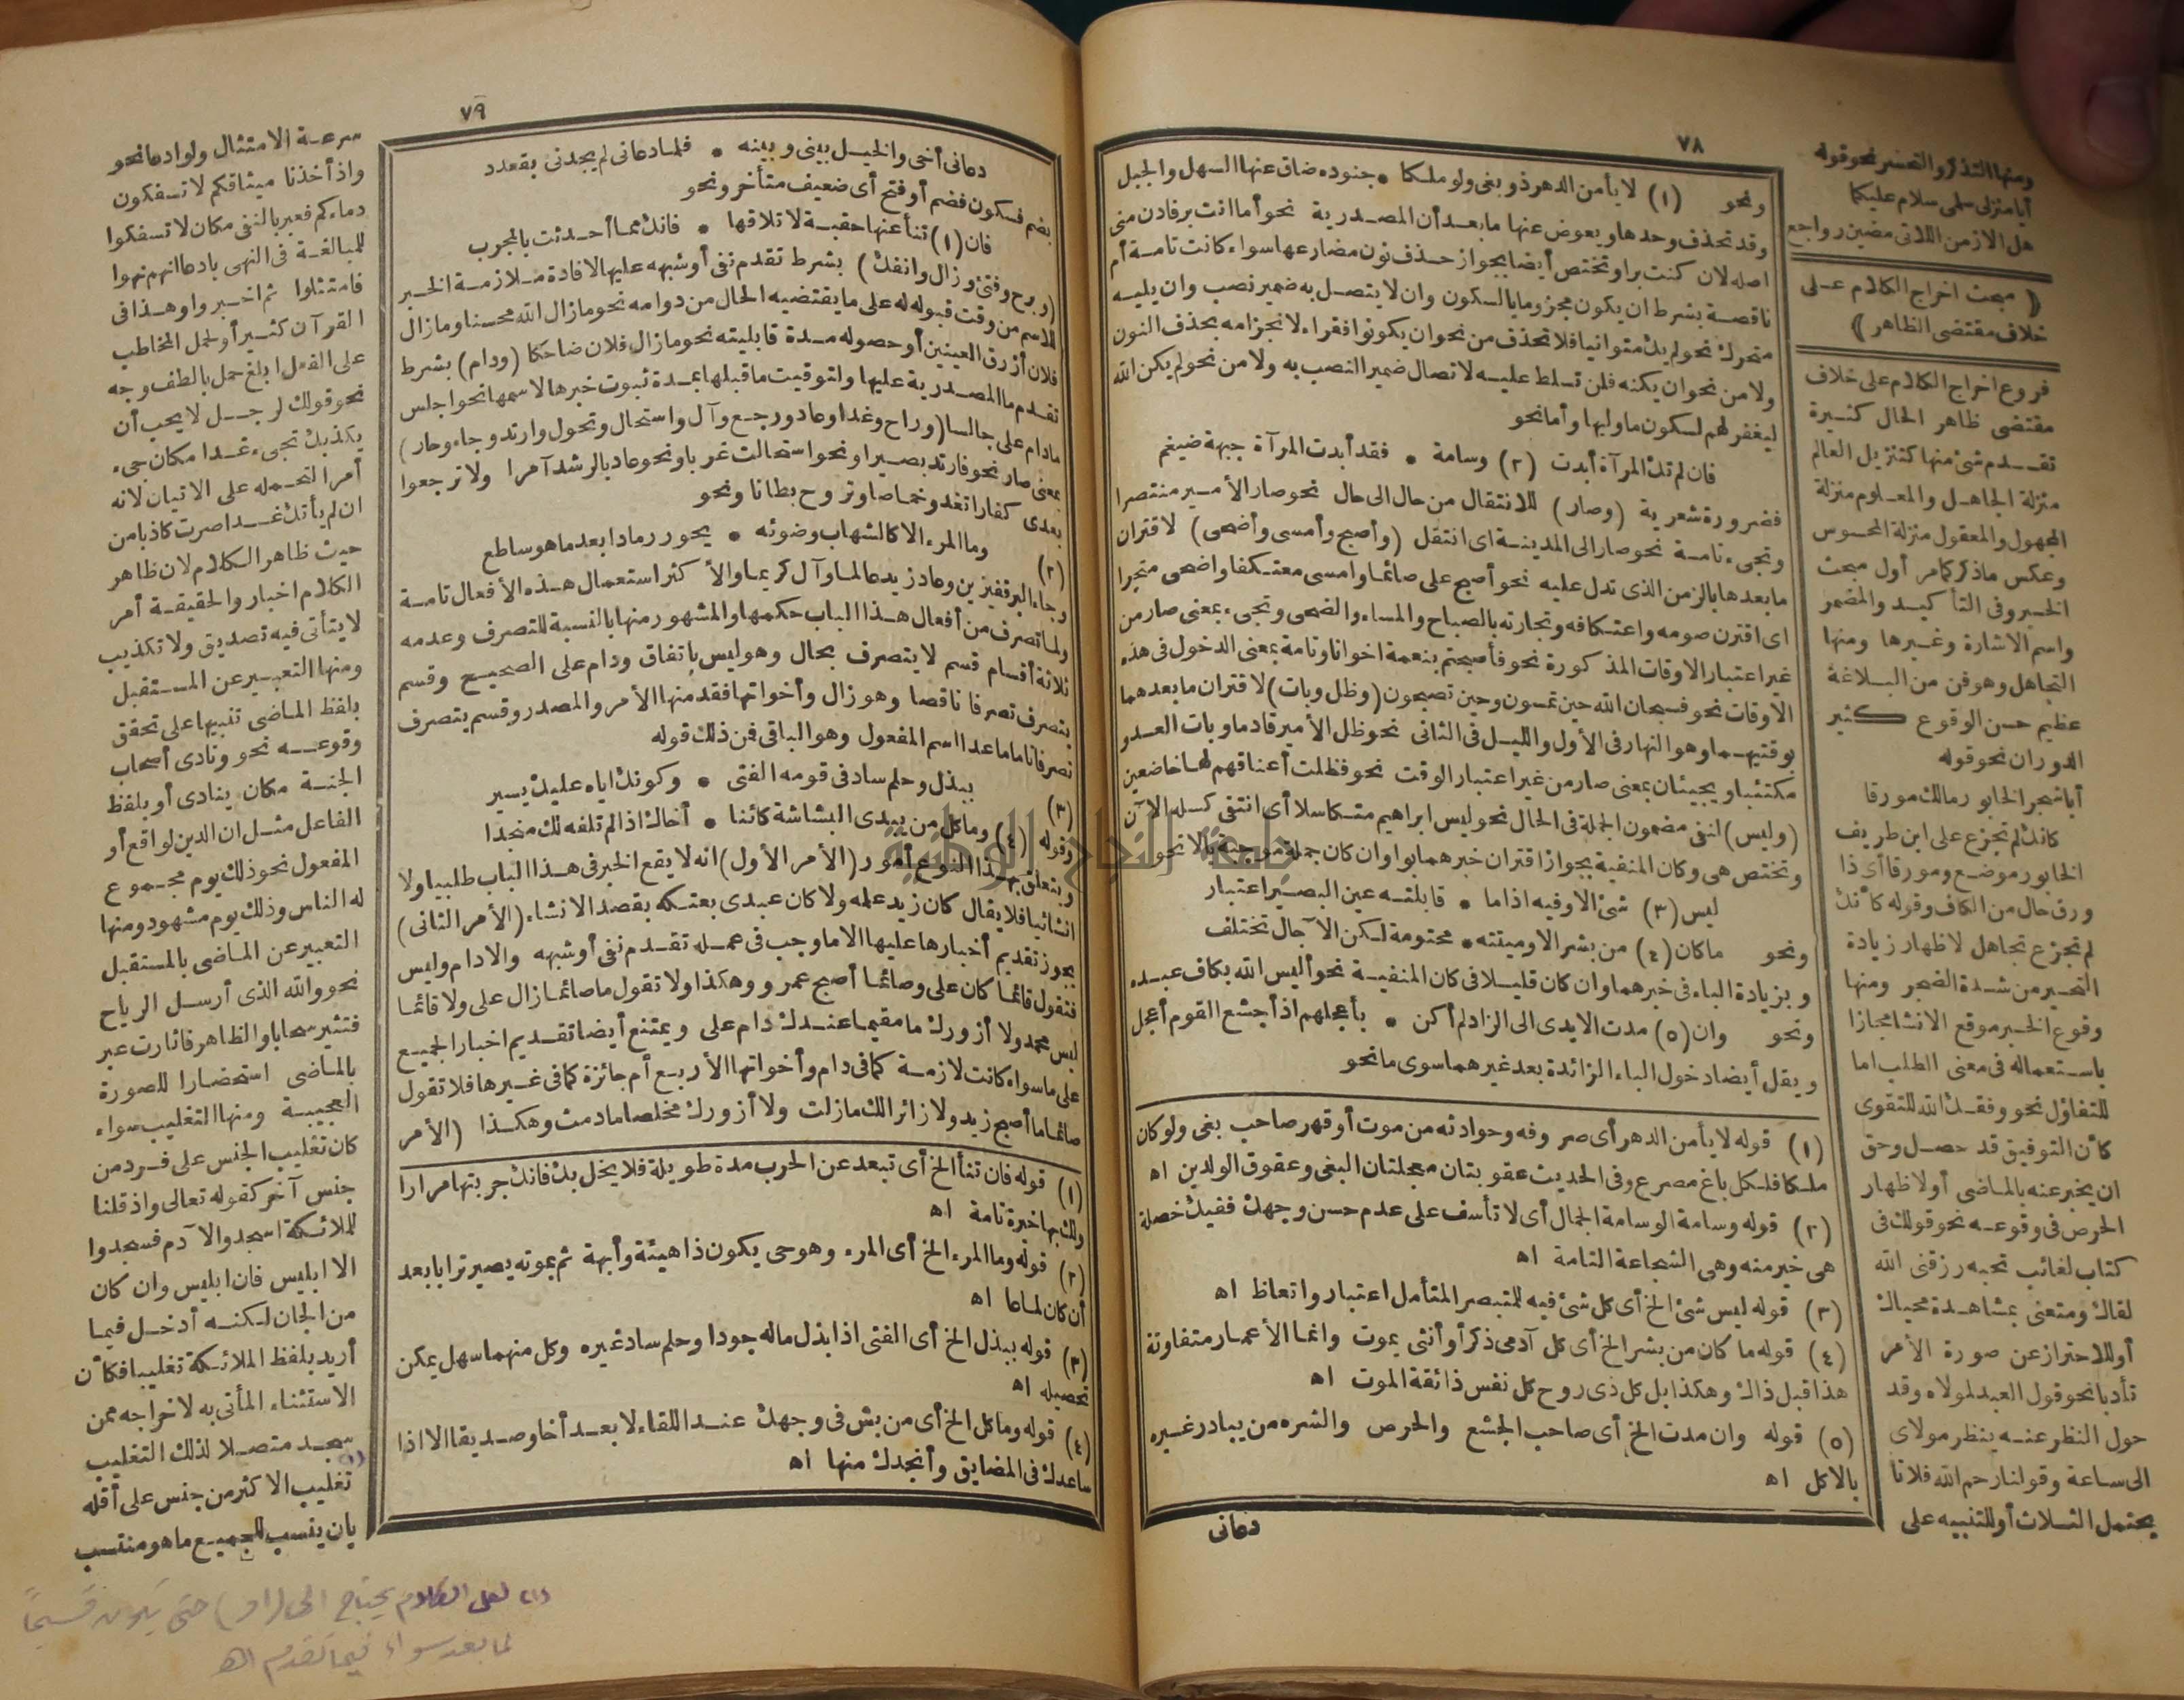 ٧٨
ونحو (١) لا يأمن الدهر ذو بغى ولو ملكا • جنوده ضاق عنها السهل والجبل
وقد تحذف وحدها ويعوض عنها ما بعد أن المصدرية نحو أما انت برفادن منى
اصله لان كنت برا وتختص أيضا بجواز حذف نون مضارعها سواء كانت تامة أم
ناقصة بشرط ان يكون مجزوما بالسكون وان لا يتصل به ضمير نصب وان يليه
متحرك نحو لم يك متوانيا فلا تحذف من نحو ان يكونوا فقراء لانجزامه بحذف النون
ولا من نحو ان يكنه فلن تسلط عليه لاتصال ضمير النصب به ولا من نحو لم يكن الله
ليغفر لهم لسكون ما وليها وأما نحو
فان لم تك المرآة أبدت (٢) وسامة • فقد أبدت المرآة جبهة ضيغم
فضرورة شعرية (وصار) للانتقال من حال الى حال نحو صار الأمير منتصرا
وتجىء تامة نحو صار الى المدينة اى انتقل (وأصبح وأمسى وأضحى) لاقتران
ما بعدها بالزمن الذى تدل عليه نحو أصبح على صائما وامسى معتكفا واضحى متجرا
اى اقترن صومه واعتكافه وتجارته بالصباح والمساء والضحى وتجىء بمعنى صار من
غير اعتبار الاوقات المذكورة نحو فأصبحتم بنعمة اخوانا وتامة بمعنى الدخول فى هذه
الأوقات نحو فسبحان الله حين تمسون وحين تصبحون (وظل وبات) لاقتران ما بعدهما
بوقتيهما وهو النهار فى الأول والليل فى الثانى نحو ظل الأمير قادما وبات العدو
مكتئبا ويجيئان بمعنى صار من غير اعتبار الوقت نحو فظلت أعناقهم لها خاضعين
(وليس) لنفى مضمون الجملة فى الحال نحو ليس ابراهيم متكاسلا أى انتفى كسله الآن
وتختص هى وكان المنفية بجواز اقتران خبرهما بواو ان كان جملة موجبة بالا نحو
ليس (٣) شئ الا وفيه اذا ما • قابلته عين البصير اعتبار
ونحو ما كان (٤) من بشر الا وميتته • محتومة لكن الآجال تختلف
وبزيادة الباء فى خبرهما وان كان قليلا فى كان المنفية نحو أليس الله بكاف عبده
ونحو وان (٥) مدت الايدى الى الزاد لم أكن • بأعجلهم اذ أجشع القوم أعجل
ويقل أيضا دخول الباء الزائدة بعد غيرهما سوى ما نحو
(١) قوله لا يأمن الدهر أى صروفه وحوادثه من موت أو قهر صاحب بغى ولو كان
ملكا فلكل باغ مصرع وفى الحديث عقوبتان معجلتان البغى وعقوق الوالدين اه
(٢) قوله وسامة الوسامة الجمال أى لا تأسف على عدم حسن وجهك ففيك خصلة
هى خير منه وهى الشجاعة التامة اه
(٣) قوله ليس شئ الخ أى كل شئ فيه للتبصر المتأمل اعتبار واتعاظ اه
(٤) قوله ما كان من بشر الخ أى كل آدمى ذكر أو أنثى يموت وانما الأعمار متفاوتة
هذا قبل ذاك وهكذا بل كل ذى روح كل نفس ذائقة الموت اه
(٥) قوله وان مدت الخ أى صاحب الجشع والحرص والشره من يبادر غيره
بالاكل اه
دعانى
ومنها التذكر والتحسر نحو قوله
أيا منزلى سلمى سلام عليكما
هل الازمن اللاتى مضين رواجع
(مبحث اخراج الكلام على
خلاف مقتضى الظاهر)
فروع اخراج الكلام على خلاف
مقتضى ظاهر الحال كثيرة
تقدم شئ منها كتنزيل العالم
منزلة الجاهل والمعلوم منزلة
المجهول والمعقول منزلة المحسوس
وعكس ماذكر كما مر أول مبحث
الخبر وفى التأكيد والمضمر
واسم الاشارة وغيرها ومنها
التجاهل وهو فن من البلاغة
عظيم حسن الوقوع كثير
الدوران نحو قوله
أيا شجر الخابور مالك مورقا
كانك لم تجزع على ابن طريف
الخابور موضع ومورقا أى ذا
ورق حال من الكاف وقوله كأنك
لم تجزع تجاهل لاظهار زيادة
التحير من شدة الضجر ومنها
وقوع الخبر موقع الانشا مجازا
باستعماله فى معنى الطلب اما
للتفاؤل نحو وفقك الله للتقوى
كأن التوفيق قد حصل وحق
ان يخبر عنه بالماضى أو لاظهار
الحرص فى وقوعه نحو قولك فى
كتاب لغائب تحبه رزقنى الله
لقاك ومتعنى بمشاهدة محياك
أو للاحتراز عن صورة الأمر
تأدبا نحو قول العبد لمولاه وقد
حول النظر عنه ينظر مولاى
الى ساعة وقولنا رحم الله فلانا
يحتمل الثلاث أو للتنبيه على
٧٩
دعانى أخى والخيل بينى وبينه • فلما دعانى لم يجدنى بقعدد
بضم فسكون فضم أو فتح أى ضعيف متأخر ونحو
فان (١) تنأ عنها حقبة لا تلاقها • فانك مما أحدثت بالمجرب
(وبرح وفتئ وزال وانفك) بشرط تقدم نفى أو شبهه عليها لافادة ملازمة الخبر
للاسم من وقت قبوله له على ما يقتضيه الحال من دوامه نحو مازال الله محسنا ومازال
فلان أزرق العينين أو حصوله مدة قابليته نحو مازال فلان ضاحكا (ودام) بشرط
تقدم ما المصدرية عليها والتوقيت ما قبلها بمدة ثبوت خبرها لاسمها نحو اجلس
مادام على جالسا (وراح وغدا وعاد ورجع وآل واستحال وتحول وارتد وجاء وحار)
بمعنى صار نحو فارتد بصيرا ونحو استحالت غربا ونحو عاد بالرشد آمرا ولا ترجعوا
بعدى كفارا تغدو خماصا وتروح بطانا ونحو
(٢) وما المرء الا كالشهاب وضوئه • يحور رمادا بعد ما هو ساطع
وجاء البر قفيزين وعاد زيد عالما وآل كريما والأكثر استعمال هذه الأفعال تامة
ولما تصرف من أفعال هذا الباب حكمها والمشهور منها بالنسبة للتصرف وعدمه
ثلاثة أقسام قسم لا يتصرف بحال وهو ليس باتفاق ودام على الصحيح وقسم
يتصرف تصرفا ناقصا وهو زال وأخواتها فقد منها الأمر والمصدر وقسم يتصرف
تصرفا تاما ماعدا اسم المفعول وهو الباقى فمن ذلك قوله
(٣) ببذل وحلم ساد فى قومه الفتى • وكونك اياه عليك يسير
وقوله (٤) وما كل من يبدى البشاشة كائنا • أخاك اذا لم تلفه لك منجدا
ويتعلق بهذا النوع أمور (الأمر الأول) انه لا يقع الخبر فى هذا الباب طلبيا ولا
انشائيا فلا يقال كان زيد علمه ولا كان عبدى بعتكه بقصد الانشاء (الأمر الثانى)
يجوز تقديم أخبارها عليها الا ما وجب فى عمله تقدم نفى أو شبهه والا دام وليس
فتقول قائما كان على وصائما أصبح عمرو وهكذا ولا تقول ما صائما زال على ولا قائما
ليس محمد ولا أزورك ما مقيما عندك دام على ويمتنع أيضا تقديم اخبار الجميع
على ما سواء كانت لازمة كما فى دام وأخواتها الأربع أم جائزة كما فى غيرها فلا تقول
صائما ما أصبح زيد ولا زائرا لك مازلت ولا أزورك مخلصا مادمت وهكذا (الأمر
(١) قوله فان تنأ الخ أى تبعد عن الحرب مدة طويلة فلا يخل بك فانك جربتها مرارا
ولك بها خبرة تامة اه
(٢) قوله وما المرء الخ أى المرء وهو حى يكون ذا هيئة وأبهة ثم بموته يصير ترابا بعد
أن كان لماعا اه
(٣) قوله ببذل الخ أى الفتى اذا بذل ماله جودا وحلم ساد غيره وكل منهما سهل يمكن
تحصيله اه
(٤) قوله وما كل الخ أى من بش فى وجهك عند اللقاء لا يعد أخا وصديقا الا اذا
ساعدك فى المضايق وأنجدك منها اه
سرعة الامتثال ولو ادعا نحو
واذ أخذنا ميثاقكم لا تسفكون
دماءكم فعبر بالنفى مكان لا تسفكوا
للمبالغة فى النهى بادعا انهم نهوا
فامتثلوا ثم اخبروا وهذا فى
القرآن كثير أو لحمل المخاطب
على الفعل ابلغ حمل بالطف وجه
نحو قولك لرجل لا يحب أن
يكذبك تجىء غدا مكان جىء
أمرا لتحمله على الاتيان لانه
ان لم يأتك غدا صرت كاذبا من
حيث ظاهر الكلام لان ظاهر
الكلام اخبار والحقيقة أمر
لا يتأتى فيه تصديق ولا تكذيب
ومنها التعبير عن المستقبل
بلفظ الماضى تنبيها على تحقق
وقوعه نحو ونادى أصحاب
الجنة مكان ينادى أو بلفظ
الفاعل مثل ان الدين لواقع أو
المفعول نحو ذلك يوم مجموع
له الناس وذلك يوم مشهود ومنها
التعبير عن الماضى بالمستقبل
نحو والله الذى أرسل الرياح
فتثير سحابا والظاهر فاثارت عبر
بالماضى استحضارا للصورة
العجيبة ومنها التغليب سواء
كان تغليب الجنس على فرد من
جنس آخر كقوله تعالى واذ قلنا
للملائكة اسجدوا لآدم فسجدوا
الا ابليس فان ابليس وان كان
من الجان لكنه أدخل فيما
أريد بلفظ الملائكة تغليبا فكأن
الاستثناء المأتى به لاخراجه ممن
سجد متصلا لذلك التغليب
(١) تغليب الاكثر من جنس على أقله
بان ينسب للجميع ما هو منتسب
(١) لعل الكلام يحتاج الى (او) حتى يكون قسيمًا
لما بعد سواء فيما تقدم اه
جامعة النجاح الوطنية